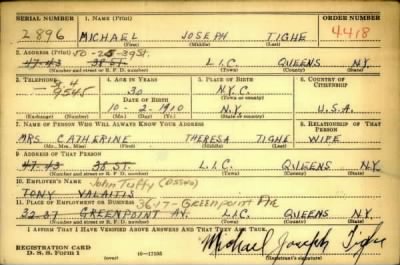 SERIAL NUMBER 1. NAME (Print) ORDER NUMBER
2896 MICHAEL JOSEPH TIGHE 4418
(First) (Middle) (Last)
2. ADDRESS (Print) 50-25-39 St.
47-43 38 ST. L.I.C. QUEENS N.Y.
(Number and street or R. F. D. number) (Town) (County) (State)
3. TELEPHONE 4. AGE IN YEARS 5. PLACE OF BIRTH 6. COUNTRY OF CITIZENSHIP
30 N.Y.C.
9545 DATE OF BIRTH (Town or county)
10-2-1910 N.Y. U.S.A.
(Mo.) (Day) (Yr.) (State or country)
7. NAME OF PERSON WHO WILL ALWAYS KNOW YOUR ADDRESS 8. RELATIONSHIP OF THAT PERSON
MRS CATHERINE THERESA TIGHE WIFE
(Mr., Mrs., Miss) (First) (Middle) (Last)
9. ADDRESS OF THAT PERSON
47-43 38 ST. L.I.C. QUEENS N.Y.
(Number and street or R. F. D. number) (Town) (County) (State)
10. EMPLOYER'S NAME John Tuffy
TONY
11. PLACE OF EMPLOYMENT OR BUSINESS 36-17- Greenpoint Ave
32-37 GREENPOINT AV. L.I.C. QUEENS N.Y.
(Number and street or R. F. D. number) (Town) (County) (State)
I AFFIRM THAT I HAVE VERIFIED ABOVE ANSWERS AND THAT THEY ARE TRUE.
REGISTRATION CARD
D. S. S. Form 1 Michael Joseph Tighe
(Registrant's signature)